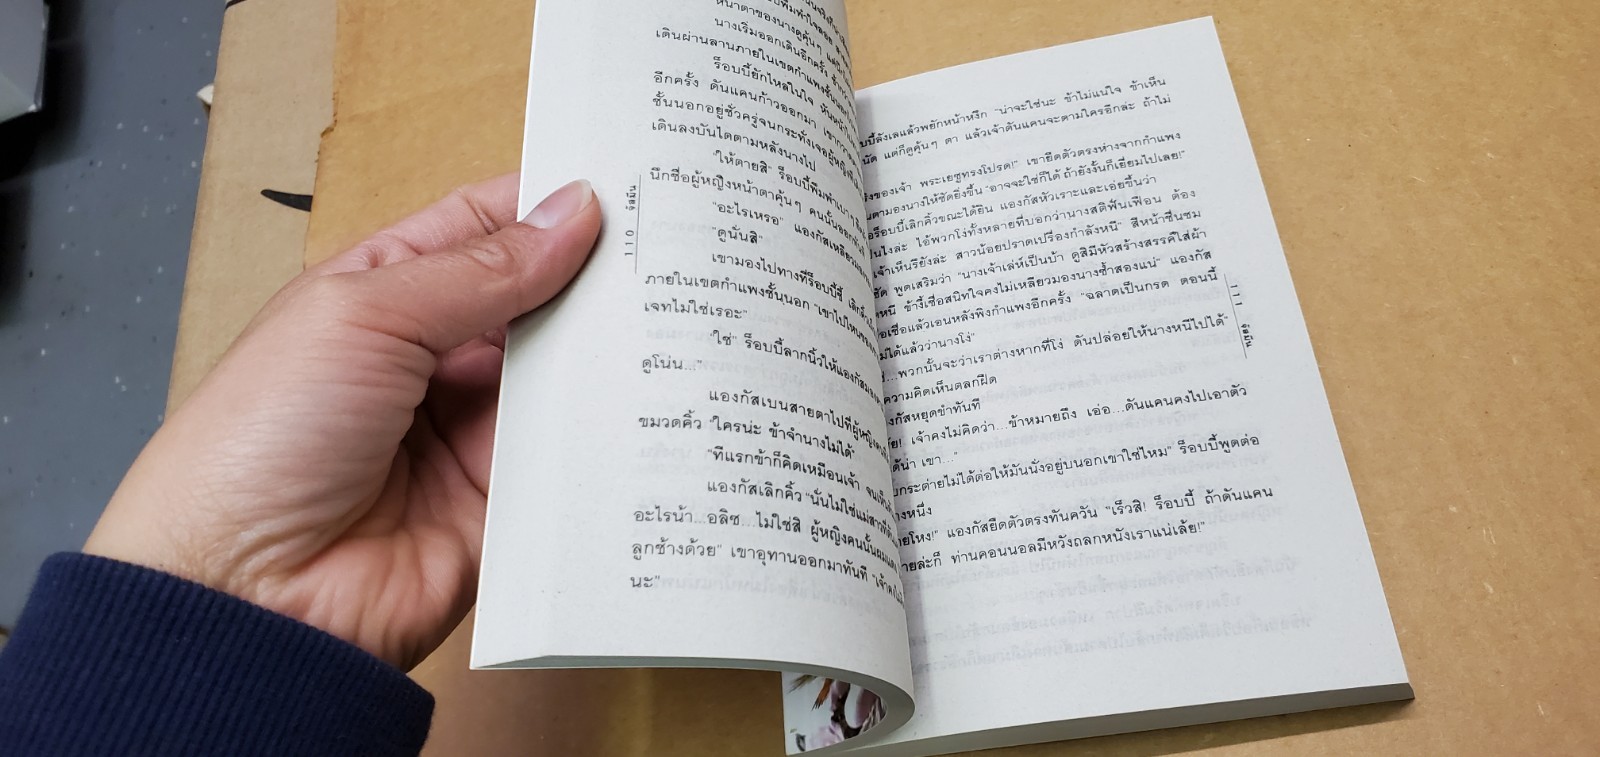 หน้าตาของนางดูคุ้นๆ
นางเริ่มออกเดินอีกครั้ง
เดินผ่านลานภายในเขตกำแพงชั้นนอก
ร็อบบี้ยักไหล่ในใจ หันหน้า
อีกครั้ง ดันแคนก้าวออกมา เขากวาด
ชั้นนอกอยู่ชั่วครู่จนกระทั่งเจอผู้หญิง
เดินลงบันไดตามหลังนางไป
"ให้ตายสิ" ร็อบบี้พึมพำเบาๆ
นึกชื่อผู้หญิงหน้าตาคุ้นๆ คนนั้นออก
"อะไรเหรอ" แองกัสเหลียว
"ดูนั่นสิ"
เขามองไปทางที่ร็อบบี้ชี้ เลิก
ภายในเขตกำแพงชั้นนอก "เขาไปไหน
เจทไม่ใช่เรอะ"
"ใช่" ร็อบบี้ลากนิ้วให้แองกัส
ดูโน่น..."
แองกัสเบนสายตาไปที่ผู้หญิง
ขมวดคิ้ว "ใครน่ะ ข้าจำนางไม่ได้"
"ทีแรกข้าก็คิดเหมือนเจ้า จน
แองกัสเลิกคิ้ว "นั่นไม่ใช่แม่สาวที่
อะไรน้า...อลิซ...ไม่ใช่สิ ผู้หญิงคนนั้นผม
ลูกช้างด้วย" เขาอุทานออกมาทันที "เจ้า
นะ"
110 รสมิน
บี้ลังเลแล้วพยักหน้าหงึก "น่าจะใช่นะ ข้าไม่แน่ใจ ข้าเห็น
แต่ก็ดูคุ้นๆ ตา แล้วเจ้าดันแคนจะตามใครอีกล่ะ ถ้าไม่
ของเจ้า พระเยซูทรงโปรด!" เขายืดตัวตรงห่างจากกำแพง
ตามองนางให้ชัดยิ่งขึ้น "อาจจะใช่ก็ได้ ถ้ายังงั้นก็เยี่ยมไปเลย!"
ร็อบบี้เลิกคิ้วขณะได้ยิน แองกัสหัวเราะและเอ่ยขึ้นว่า
ไงล่ะ ไอ้พวกโง่ทั้งหลายที่บอกว่านางสติฟั่นเฟือน ต้อง
เจ้าเห็นรึยังล่ะ สาวน้อยปราดเปรื่องกำลังหนี" สีหน้าชื่นชม
พูดเสริมว่า "นางเจ้าเล่ห์เป็นบ้า ดูสิมีหัวสร้างสรรค์ใส่ผ้า
หนี ข้างี้เชื่อสนิทใจคงไม่เหลียวมองนางซ้ำสองแน่" แองกัส
เชื่อแล้วเอนหลังพิงกำแพงอีกครั้ง "ฉลาดเป็นกรด ตอนนี้
ได้แล้วว่านางโง่"
...พวกนั้นจะว่าเราต่างหากที่โง่ ดันปล่อยให้นางหนีไปได้"
ความคิดเห็นตลกฝืด
กัสหยุดขำทันที
เจ้าคงไม่คิดว่า...ข้าหมายถึง เอ่อ...ดันแคนคงไปเอาตัว
น่า เขา..."
กระต่ายไม่ได้ต่อให้มันนั่งอยู่บนอกเขาใช่ไหม" ร็อบบี้พูดต่อ
างหนึ่ง
ายโหง!" แองกัสยืดตัวตรงทันควัน "เร็วสิ! ร็อบบี้ ถ้าดันแคน
ายล่ะก็ ท่านคอนนอลมีหวังถลกหนังเราแน่เล้ย!"
111 รสมิน